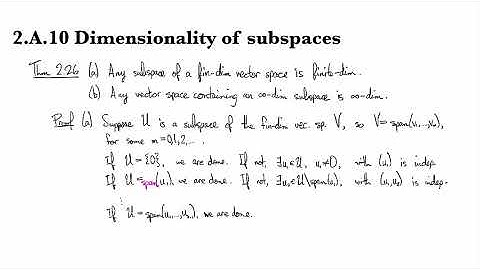 2.A.10 Dimensionality of subspaces
Thm 2.26 (a) Any subspace of a fin-dim vector space is finite-dim.
(b) Any vector space containing an ∞-dim subspace is ∞-dim.
Proof (a) Suppose U is a subspace of the fin-dim vec. sp. V, so V=span(v₁,...,vₘ),
for some m=0,1,2,...
If U={0}, we are done. If not, ∃u₁∈U, u₁≠0, with (u₁) is indep.
If U=span(u₁), we are done. If not, ∃u₂∈U\span(u₁), with (u₁,u₂) is indep.
⋮
If U=span(u₁,...,), we are done.